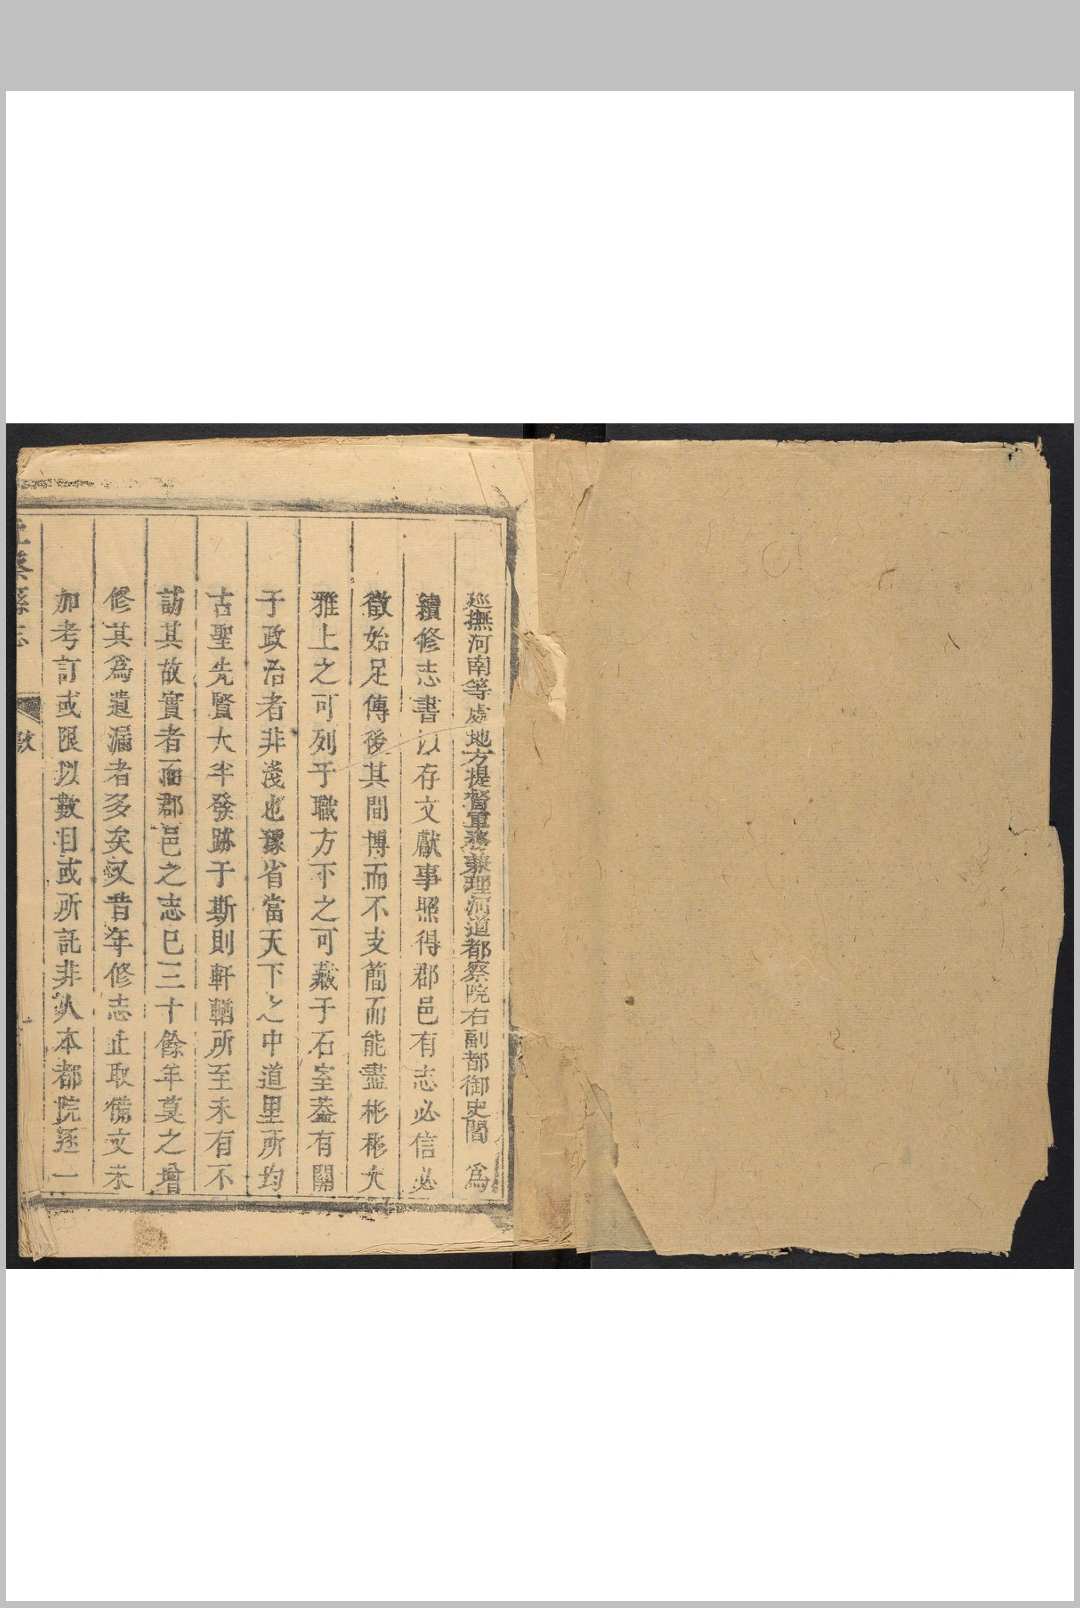 巡撫河南等處地方提督軍務兼理河道都察院右副都御史閻 為
續修志書以存文獻事照得郡邑有志必信必
徵始足傳後其間博而不支簡而能盡彬彬大
雅上之可列于職方下之可藏于石室葢有關
于政治者非淺也豫省當天下之中道里所均
古聖先賢大半發跡于斯則軒輶所至未有不
訪其故實者而郡邑之志已三十餘年莫之增
修其為遺漏者多矣又昔年修志止取備文未
加考訂或限以數目或所託非人本都院逐一
上蔡縣志